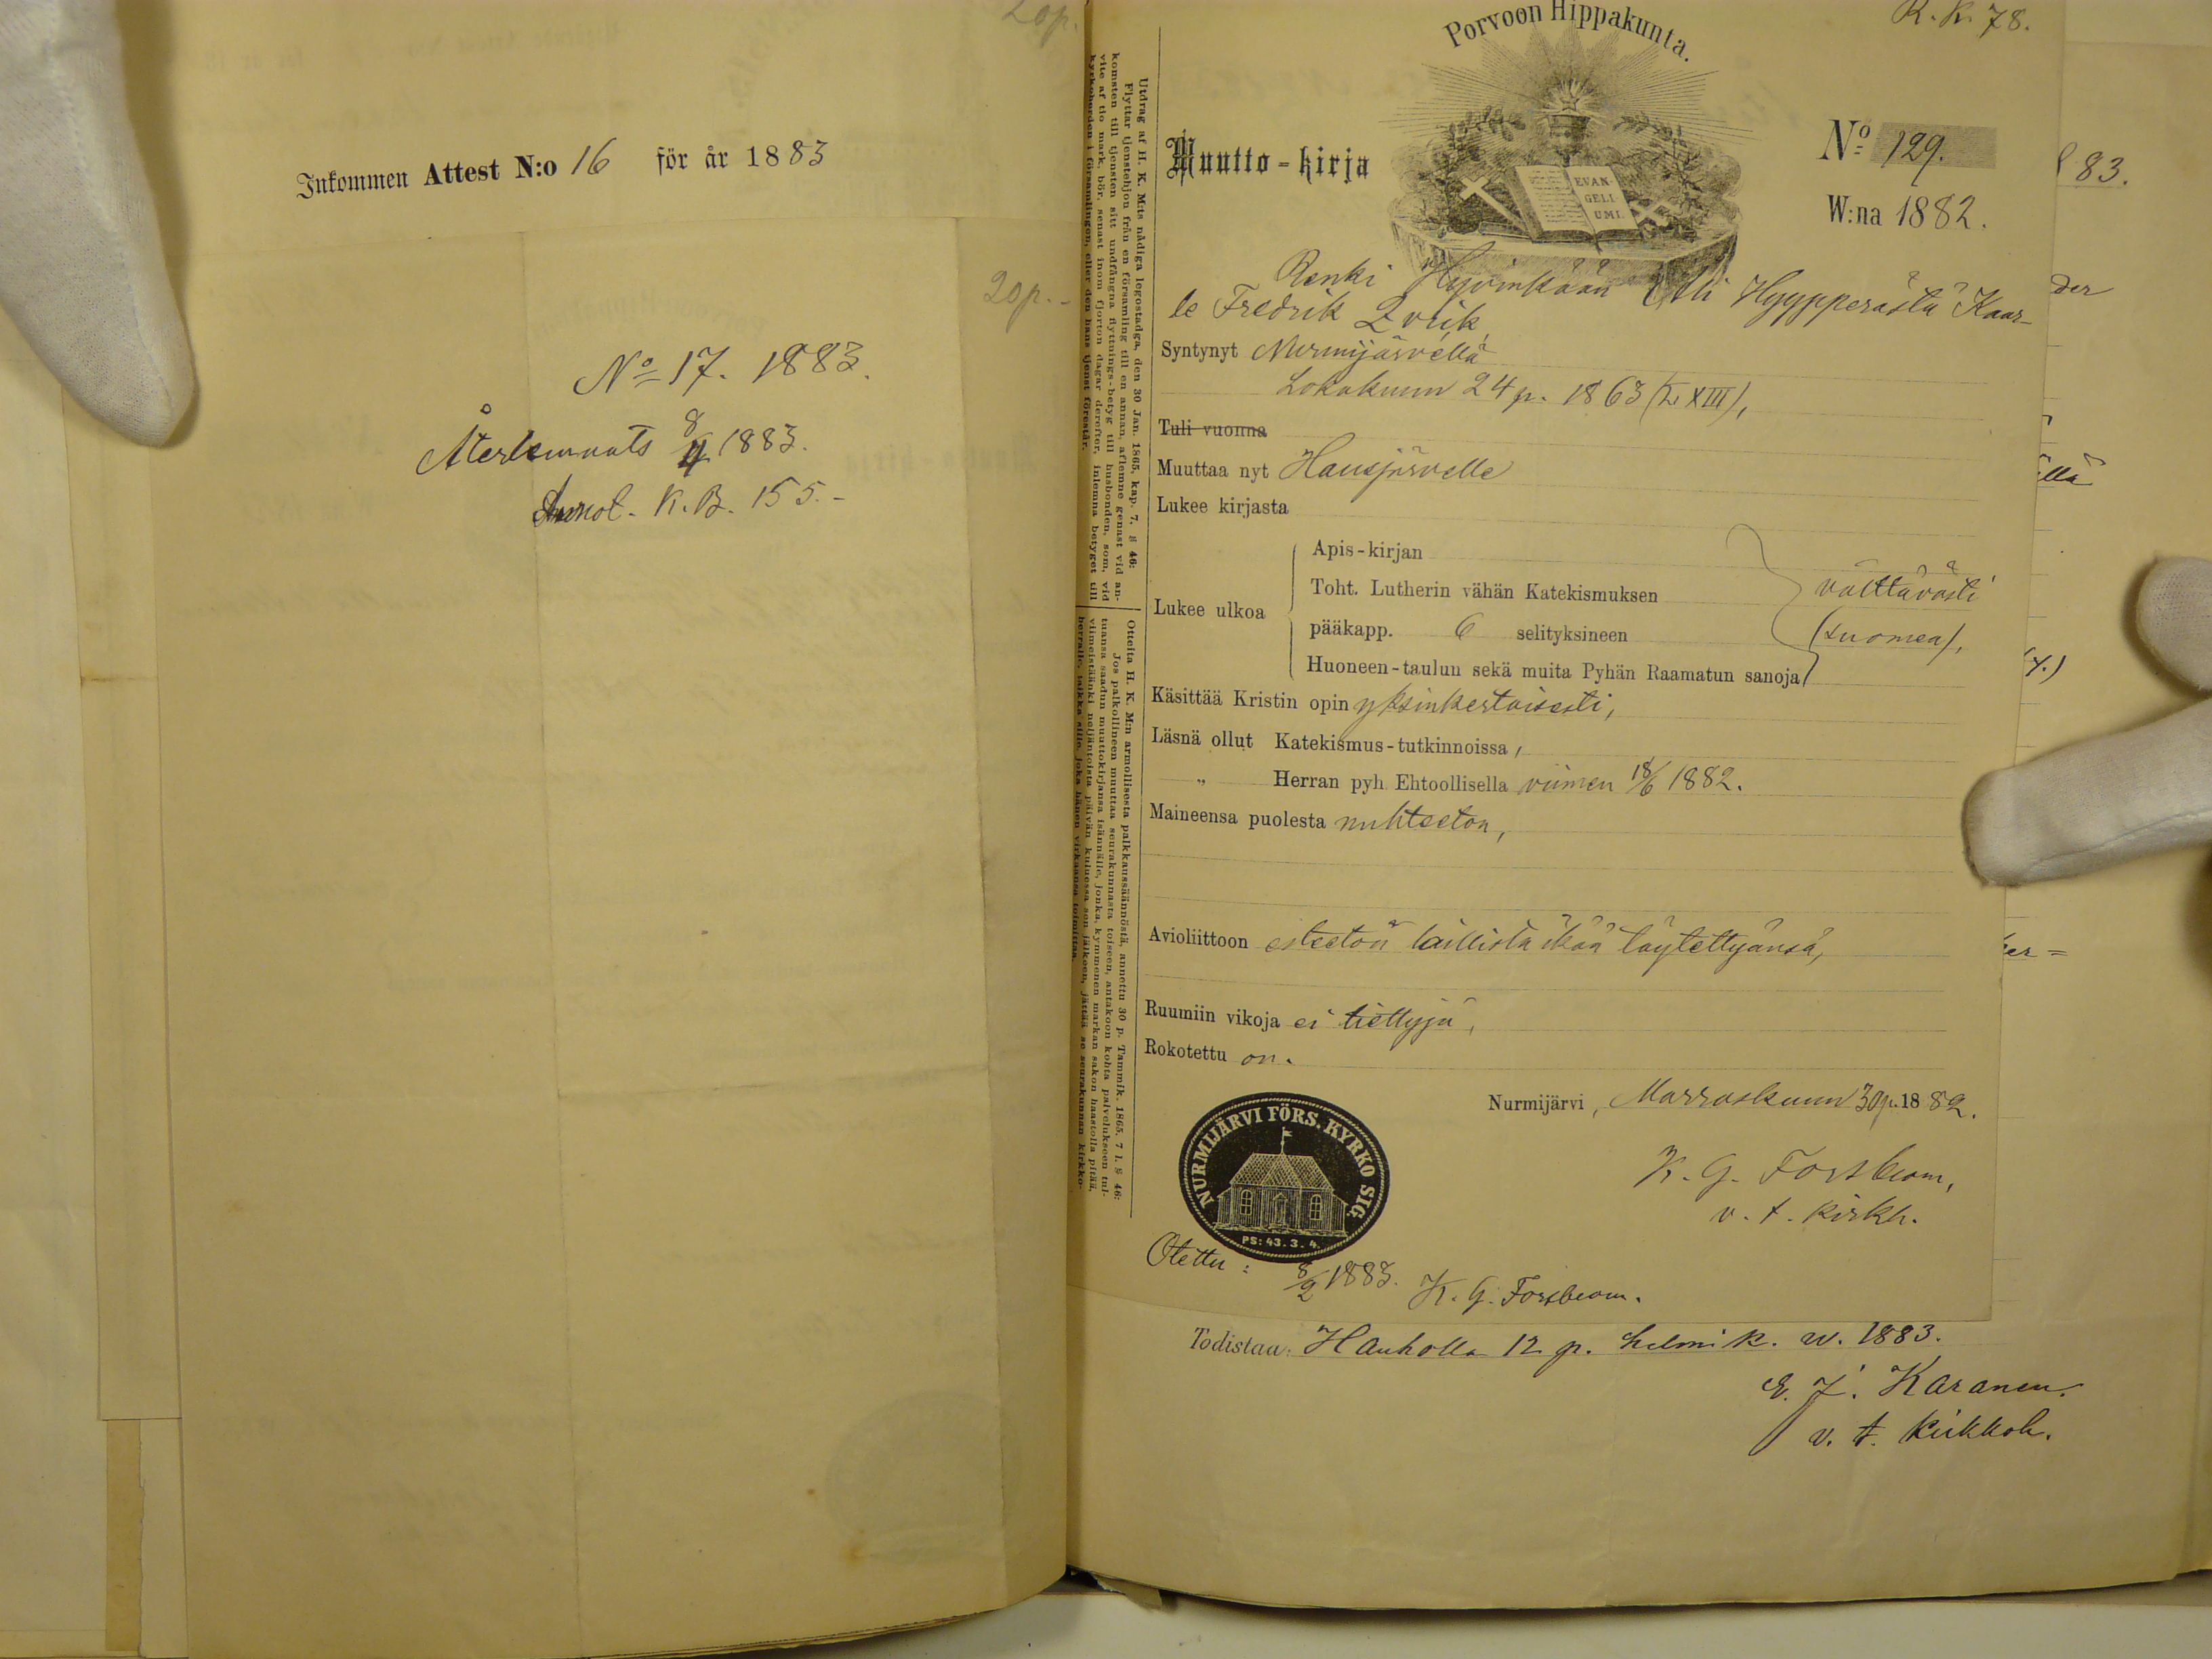 20p.
Inkommen Attest N:o 16 för år 1883
20p.-
No 17. 1883.
Återkommits 8/4 1883.
Annot. K.B. 155.-
Utdrag af H. K. M:ts nådiga legostadga, den 30 Jan. 1865, kap. 7. § 46:
Flyttar tjenstehjon från en församling till en annan, aflemne genast vid an-
komsten till tjensten sitt undfångna flyttnings-betyg till husbonden, som, vid
vite af tio mark, bör, senast inom fjorton dagar derefter, inlemna betyget till
kyrkoherden i församlingen, eller den hans tjenst förestår.
Otteita H. K. M:n armollisesta palkkaussäännöstä, annettu 30 p. Tammik. 1865, 7 l. § 46:
Jos palkollineen muuttaa seurakunnasta toiseen, antakoon kohta palvelukseen tul-
tuansa saadun muuttokirjansa isännälle, jonka, kymmenen markan sakon haastolla pitää,
viimeistäänki neljäntoista päivän kuluessa sen jälkeen, jättää se seurakunnan kirkko-
herralle, taikka sille, joka hänen virkaansa toimittaa.
Porvoon Hippakunta.
R. K. 78.
Muutto-kirja
No 129.
W:na 1882.
EVAN-
GELI-
UMI.
Renki Hyvinkään Ali Hyypperästä Kaar-
le Fredrik Qvick
Syntynyt Nurmijärvellä
Lokakuun 24 p. 1863 (L. XIII),
Tuli vuonna
Muuttaa nyt Hausjärvelle
Lukee kirjasta
Apis-kirjan
Toht. Lutherin vähän Katekismuksen
välttävästi
Lukee ulkoa
pääkapp. 6 selityksineen
(suomea),
Huoneen-taulun sekä muita Pyhän Raamatun sanoja
Käsittää Kristin opin yksinkertaisesti,
Läsnä ollut Katekismus-tutkinnoissa,
„ Herran pyh. Ehtoollisella viimen 18/6 1882.
Maineensa puolesta nuhteeton,
Avioliittoon esteetön laillista ikää täytettyänsä,
Ruumiin vikoja ei tiettyjä,
Rokotettu on.
Nurmijärvi, Marraskuun 30 p. 1882.
NURMIJÄRVI FÖRS. KYRKO SIG.
PS: 43. 3. 4.
K. G. Forsbom,
v. t. kirkh.
Otettu: 8/2 1883. K. G. Forsbom.
Todistaa: Hauholla 12 p. helmik. w. 1883.
E. J. Karanen.
v. t. kirkkoh.
83.
der